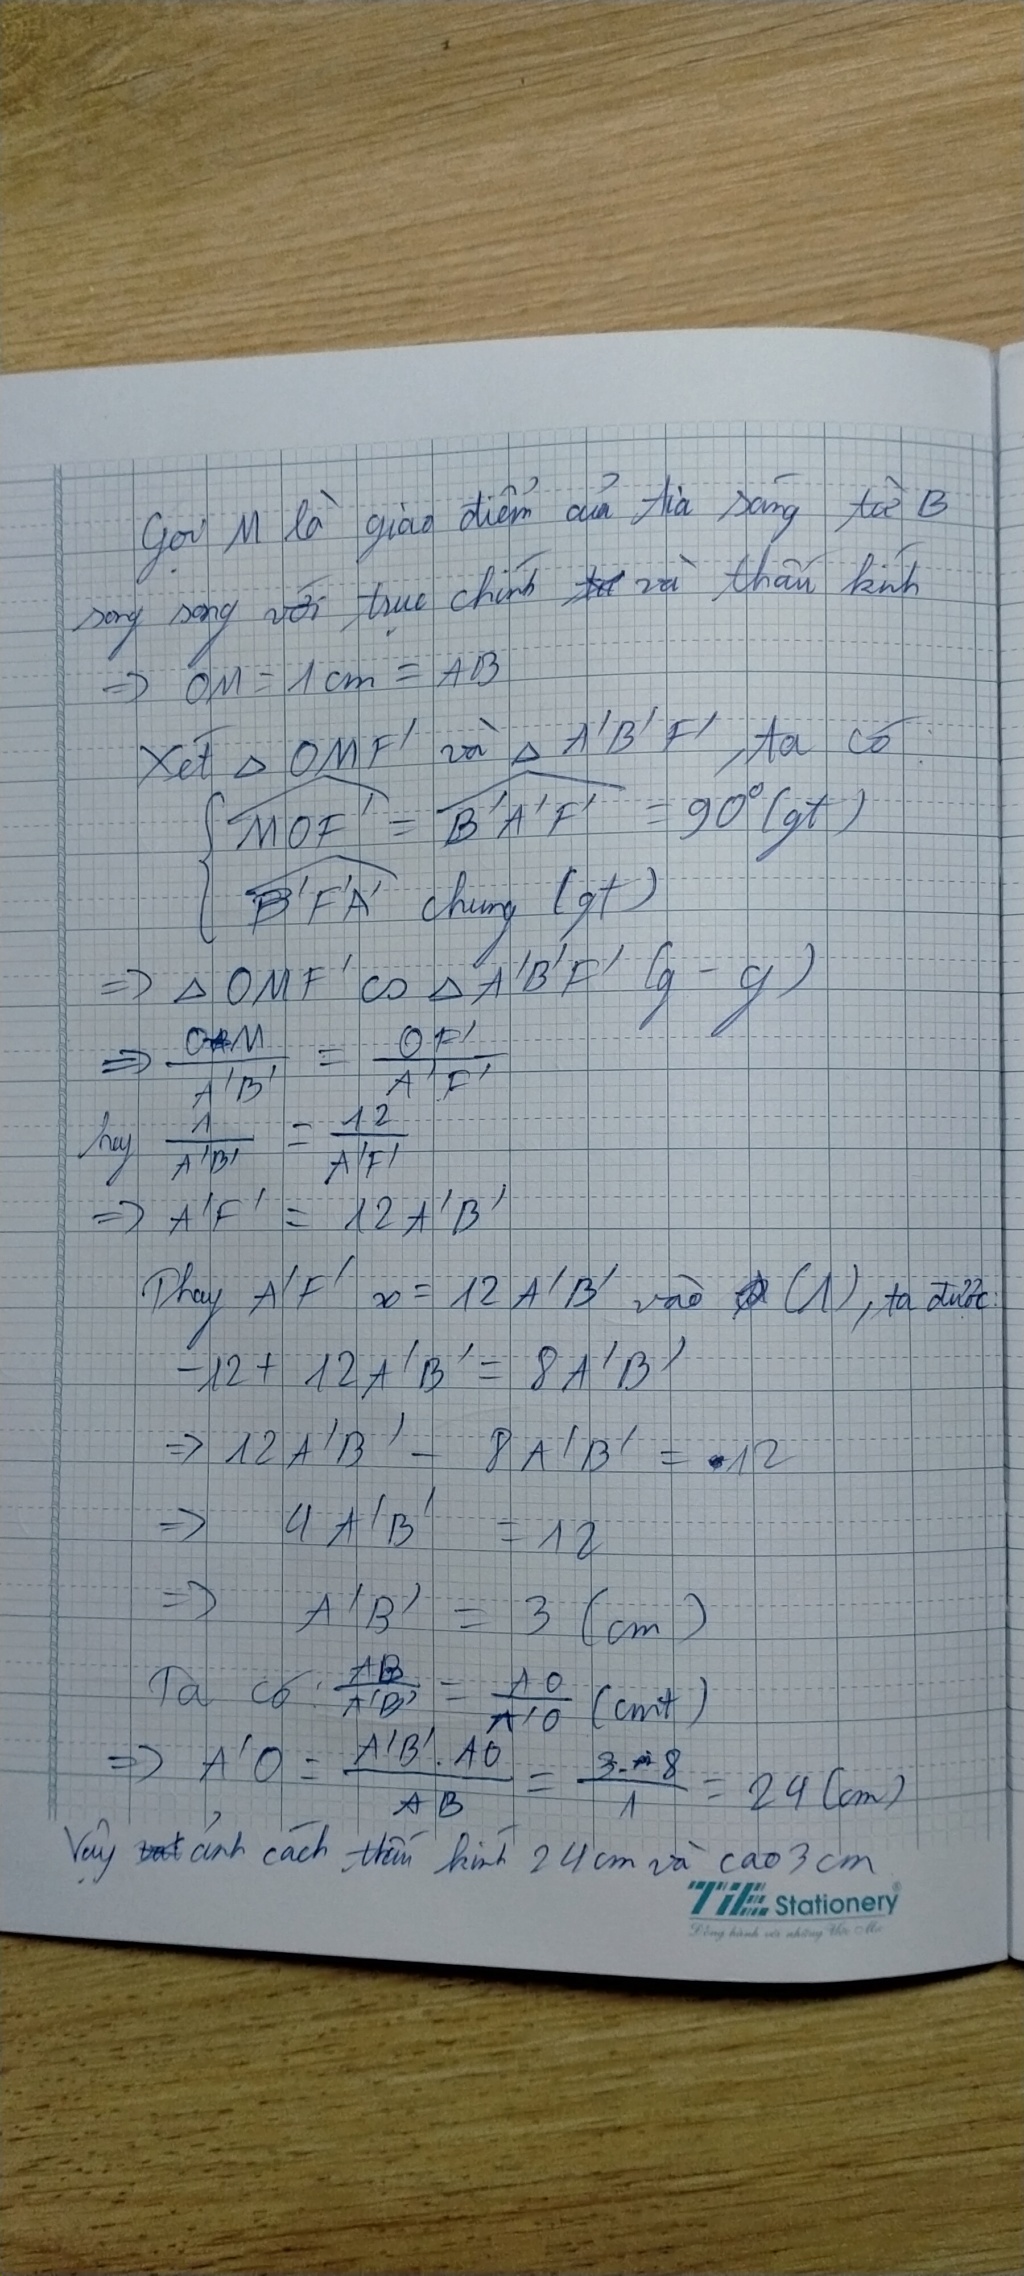 Gọi M là giao điểm của tia sáng từ B
song song với trục chính và thấu kính
=> OM = 1cm = AB
Xét △ OMF' và △ A'B'F', ta có:
MOF' = B'A'F' = 90° (gt)
B'F'A' chung (gt)
=> △ OMF' ∽ △ A'B'F' (g - g)
=> OM/A'B' = OF'/A'F'
hay 1/A'B' = 12/A'F'
=> A'F' = 12A'B'
Thay A'F' = 12A'B' vào (1), ta được:
-12 + 12A'B' = 8A'B'
=> 12A'B' - 8A'B' = 12
=> 4A'B' = 12
=> A'B' = 3 (cm)
Ta có: AB/A'B' = AO/A'O (cmt)
=> A'O = A'B'.AO/AB = 3.8/1 = 24 (cm)
Vậy ảnh cách thấu kính 24cm và cao 3cm
TiE Stationery